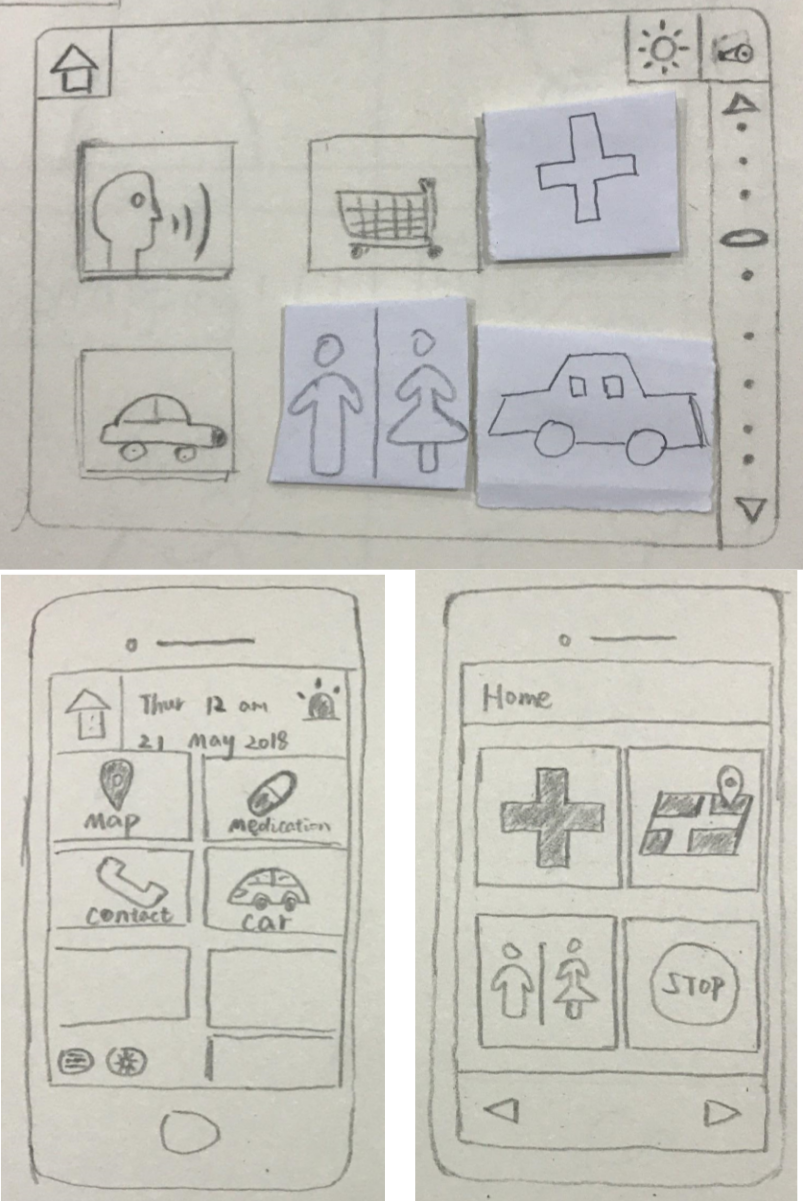 Thur 12 am
21 May 2018
Map
Medication
Contact
Car
Home
STOP